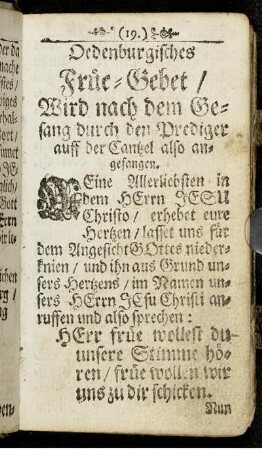 (19.)
Oedenburgisches
Früe-Gebet /
Wird nach dem Ge-
sang durch den Prediger
auff der Cantzel also an-
gefangen.
MEine Allerliebsten in
dem HErrn JESU
Christo / erhebet eure
Hertzen / lasset uns für
dem Angesicht GOttes nieder-
knien / und ihn aus Grund un-
sers Hertzens / im Namen un-
sers HErrn JEsu Christi an-
ruffen und also sprechen :
HErr früe wollest du
unsere Stimme hö-
ren / früe wollen wir
uns zu dir schicken.
Nun